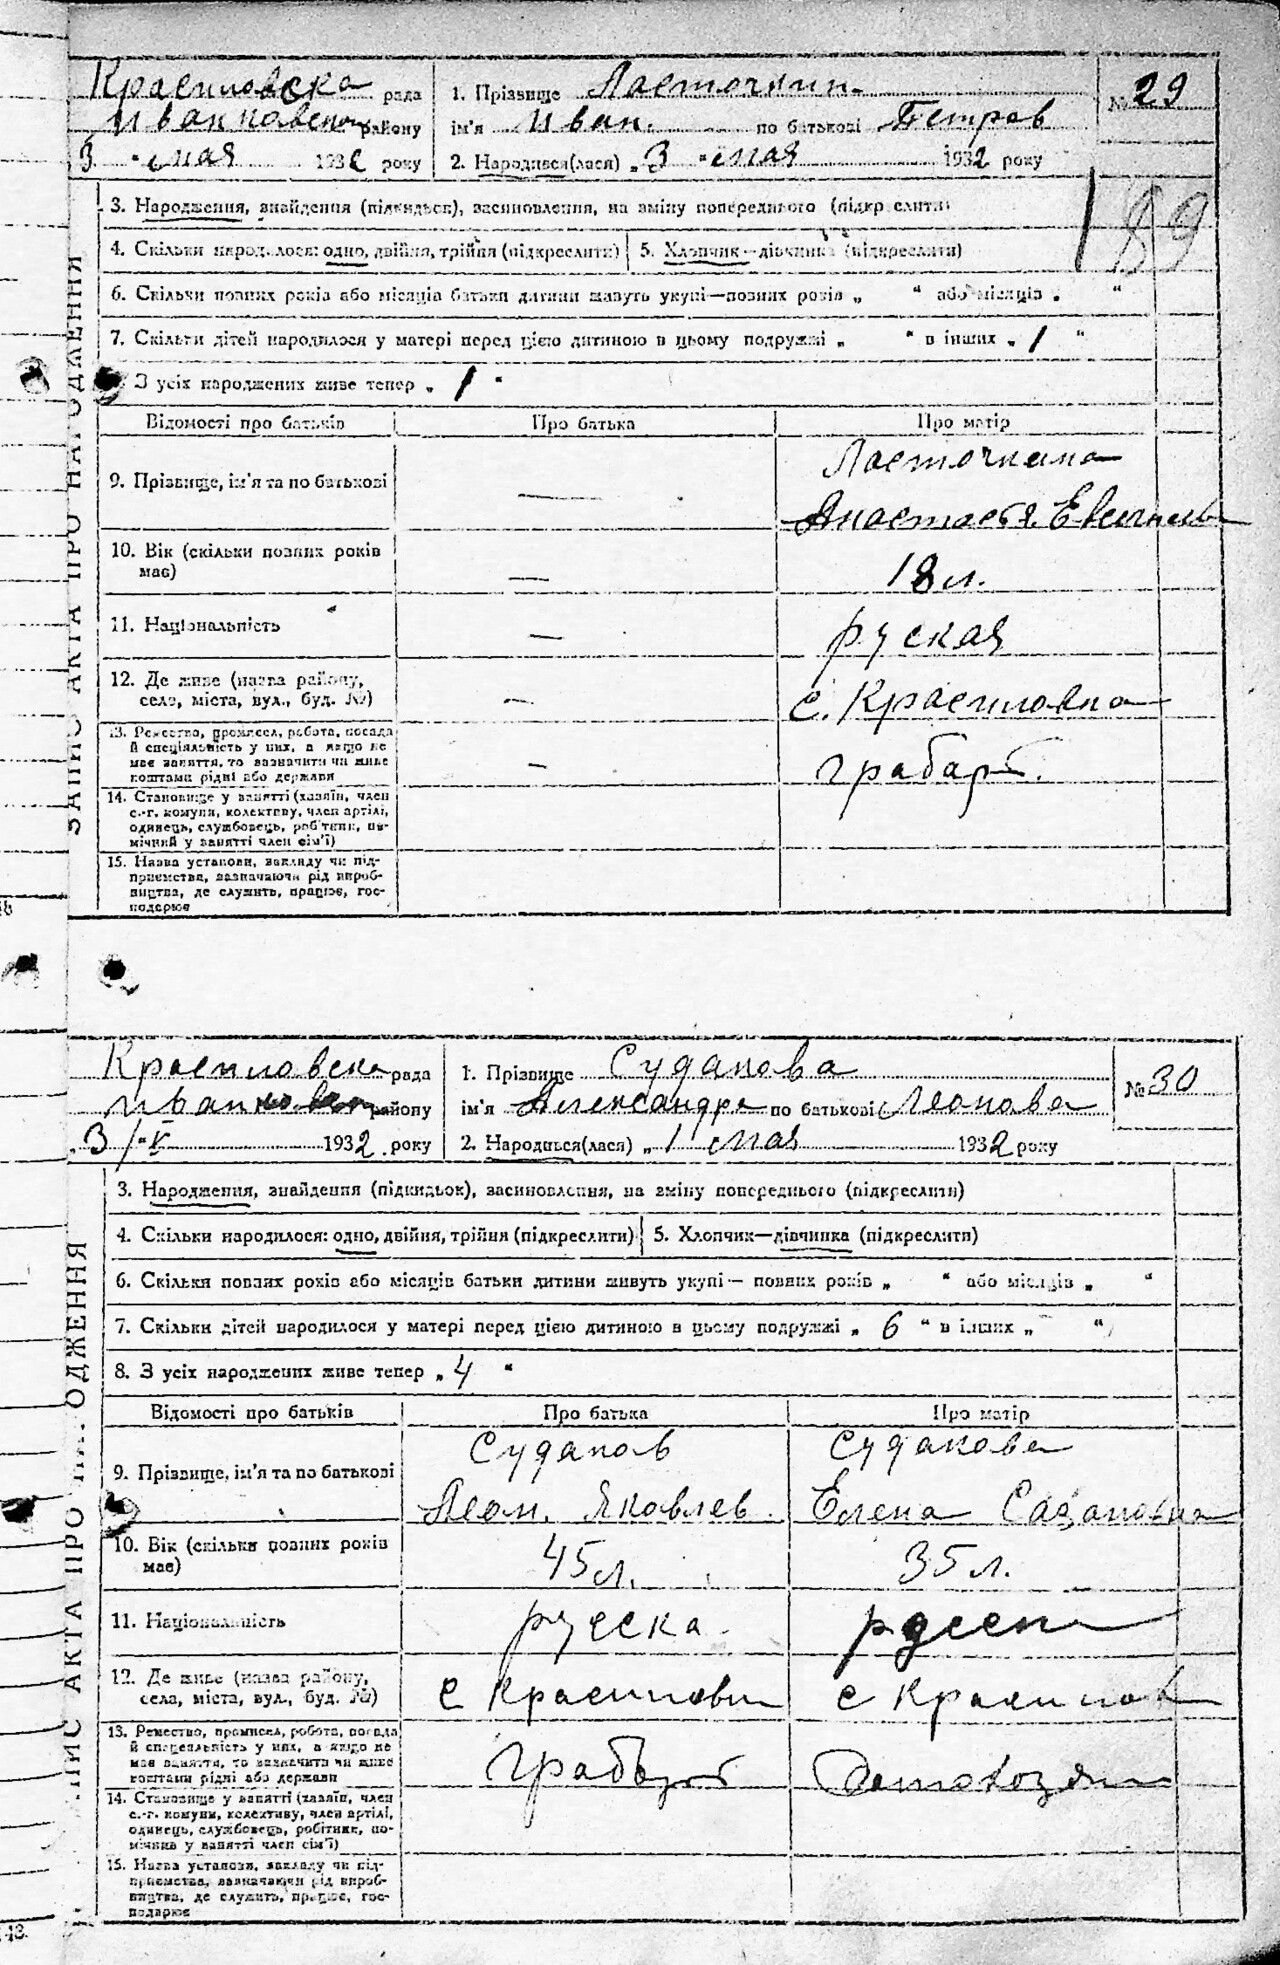 Красиловска рада
Иванковском району
3 " мая 1932 року
1. Прізвище Ласточкин.
ім'я Иван. по батькові Петров
2. Народився(лася) „ 3 " мая 1932 року
№ 29
189
ЗАПИС АКТА ПРО НАРОДЖЕННЯ
3. Народження, знайдення (підкидьок), засиновлення, на зміну попереднього (підкреслити)
4. Скільки народилося: одно, двійня, трійня (підкреслити)
5. Хлопчик—дівчинка (підкреслити)
6. Скільки повних років або місяців батьки дитини живуть укупі—повних років „ " або місяців „ "
7. Скільки дітей народилося у матері перед цією дитиною в цьому подружжі „ " в інших „ 1 "
З усіх народжених живе тепер „ 1 "
Відомості про батьків
Про батька
Про матір
9. Прізвище, ім'я та по батькові
—
Ласточкина
Анастасья
10. Вік (скільки повних років
має)
—
18 л.
11. Національність
—
руская
12. Де живе (назва району,
село, міста, вул., буд. №)
—
с. Красиловка
13. Ремество, промисел, робота, посада
й спеціяльність у них, а якщо не
має заняття, то зазначити чи живе
коштами рідні або держави
—
грабарь.
14. Становище у занятті (хазяїн, член
с.-г. комуни, колективу, член артілі,
одинець, службовець, робітник, по-
мічний у занятті член сім'ї)
15. Назва установи, закладу чи під-
приємства, зазначаючи рід вироб-
ництва, де служить, працює, гос-
подарює
Красиловска рада
Иванковском району
3/V 1932 року
1. Прізвище Судакова
ім'я Александра по батькові Леонова
2. Народився(лася) „ 1 мая 1932 року
№ 30
ЗАПИС АКТА ПРО НАРОДЖЕННЯ
3. Народження, знайдення (підкидьок), засиновлення, на зміну попереднього (підкреслити)
4. Скільки народилося: одно, двійня, трійня (підкреслити)
5. Хлопчик—дівчинка (підкреслити)
6. Скільки повних років або місяців батьки дитини живуть укупі — повних років „ " або місяців „ "
7. Скільки дітей народилося у матері перед цією дитиною в цьому подружжі „ 6 " в інших „ "
8. З усіх народжених живе тепер „ 4 "
Відомості про батьків
Про батька
Про матір
9. Прізвище, ім'я та по батькові
Судаков
Леон. Яковлев.
Судакова
Елена Сазановна
10. Вік (скільки повних років
має)
45 л.
35 л.
11. Національність
русска
12. Де живе (назва району,
села, міста, вул., буд. №)
с Красиловк
с Красиловк
13. Ремество, промисел, робота, посада
й спецеяльність у них, а якщо не
має заняття, то зазначити чи живе
коштами рідні або держави
грабарь
Домохозяйк
14. Становище у занятті (хазяїн, член
с.-г. комуни, колективу, член артілі,
одинець, службовець, робітник, по-
мічник у занятті член сім'ї)
15. Назва установи, закладу чи під-
приємства, зазначаючи рід вироб-
ництва, де служить, працює, гос-
подарює